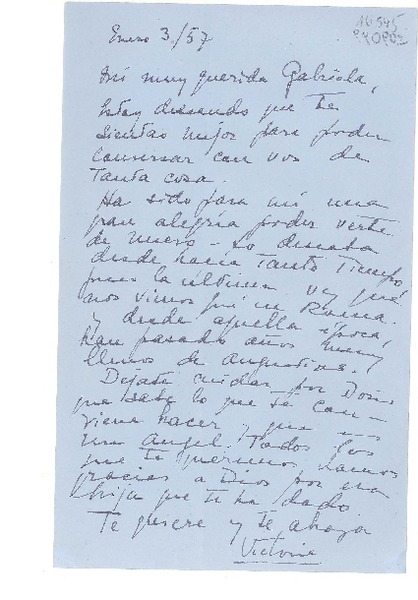 Enero 3/57
Mi muy querida Gabriela,
Estoy deseando que te
sientas mejor para poder
conversar con vos de
tanta cosa.
Ha sido para mí una
gran alegría poder verte
de nuevo - Lo deseaba
desde hacía tanto tiempo,
pues la última vez que
nos vimos fué en Roma.
Y desde aquella época,
han pasado años muy
llenos de angustias.
Dejate cuidar por Doris
que sabe lo que te con-
viene hacer y que es
un angel. Todos los
que te queremos, damos
gracias a Dios por esa
hija que te ha dado
Te quiere y te abraza
Victoria